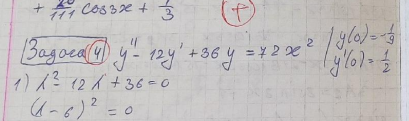 + 20/111 cos3x + 1/3 (+)
Задача (4) y'' - 12y' + 36y = 72x² | y(0) = -1/9
y'(0) = 1/2
1) λ² - 12λ + 36 = 0
(λ - 6)² = 0